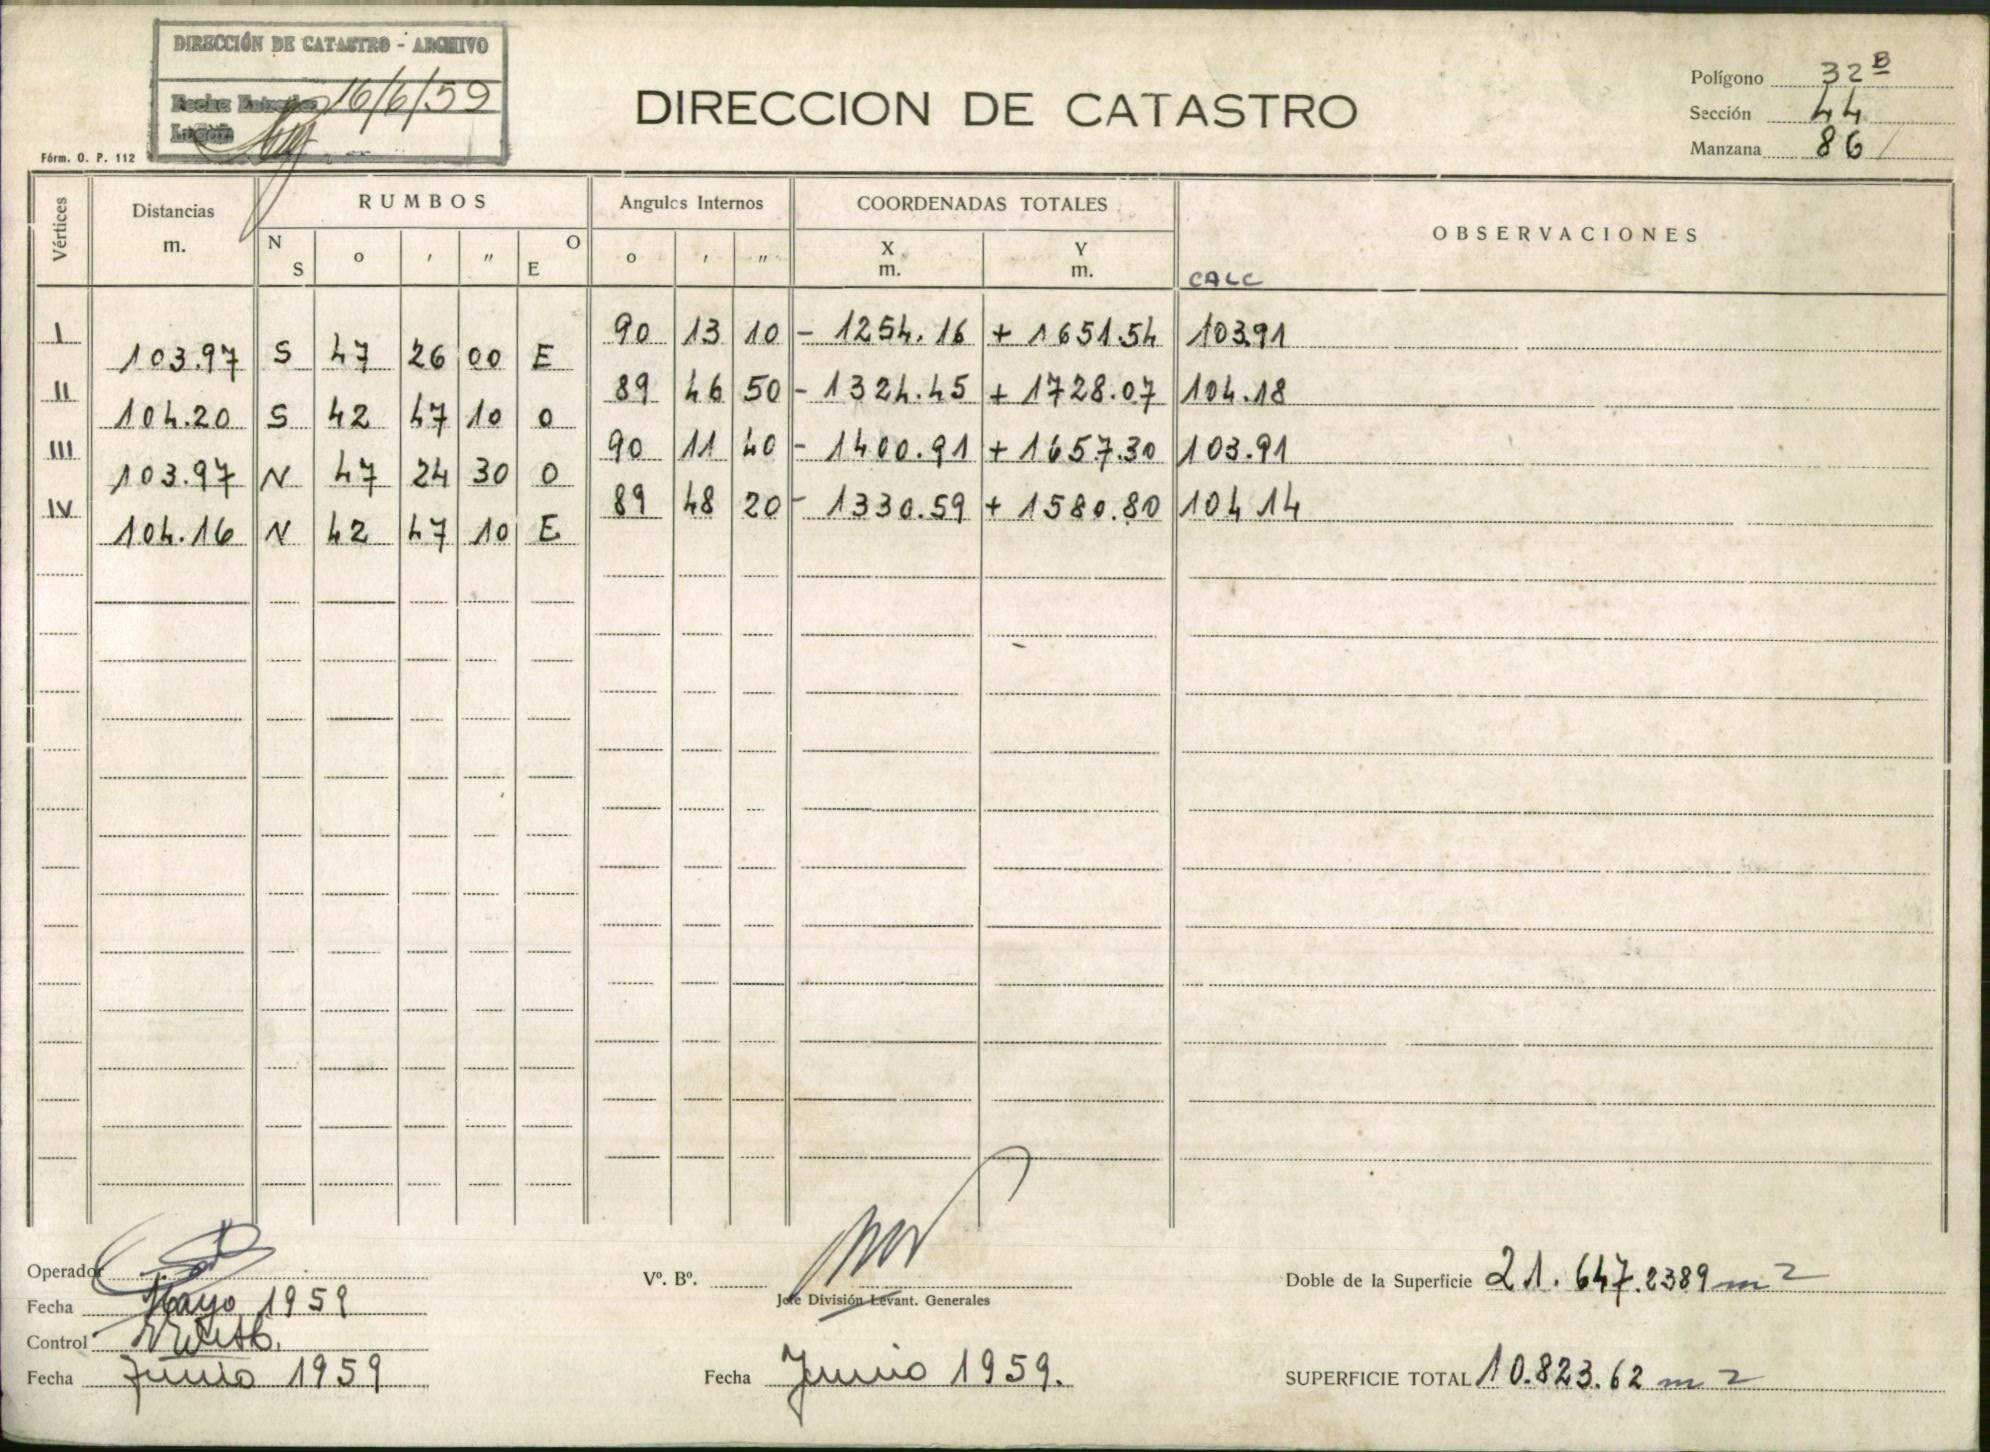 DIRECCIÓN DE CATASTRO - ARCHIVO
Fecha Entrada 16/6/59
Legajo
Fórm. O. P. 112
DIRECCION DE CATASTRO
Polígono 32 B
Sección 44
Manzana 86
Vértices Distancias m. RUMBOS Angulos Internos COORDENADAS TOTALES OBSERVACIONES
N S o ' " O E o ' " X m. Y m. CALC
I 90 13 10 - 1254.16 + 1651.54 103.91
103.97 S 47 26 00 E
II 89 46 50 - 1324.45 + 1728.07 104.18
104.20 S 42 47 10 O
III 90 11 40 - 1400.91 + 1657.30 103.91
103.97 N 47 24 30 O
IV 89 48 20 - 1330.59 + 1580.80 104 14
104.16 N 42 47 10 E
Operador
Fecha Mayo 1959
Control
Fecha Junio 1959
Vº. Bº.
Jefe División Levant. Generales
Fecha Junio 1959.
Doble de la Superficie 21.647.2389 m2
SUPERFICIE TOTAL 10.823.62 m2